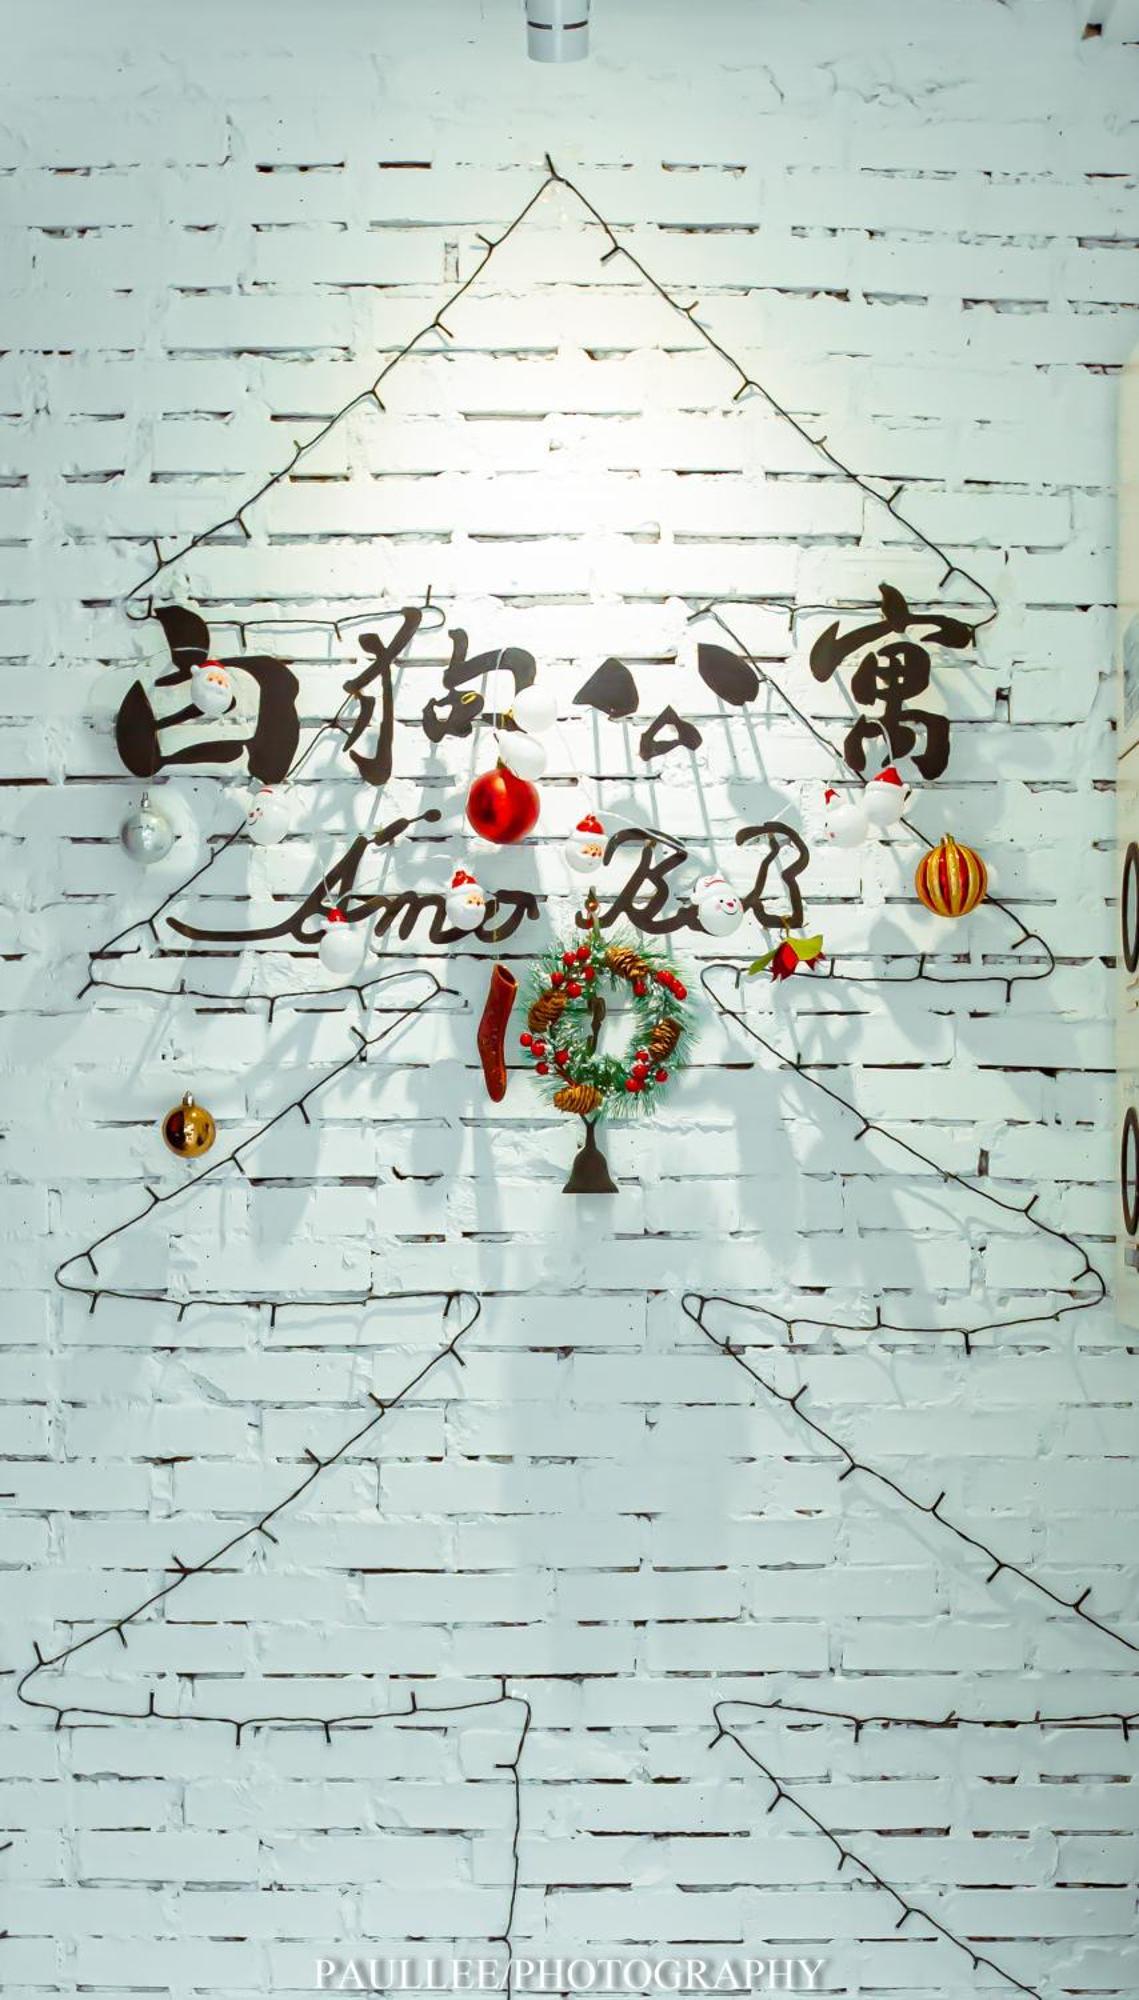 白狗公寓
Amo B&B
PAULLEE/PHOTOGRAPHY